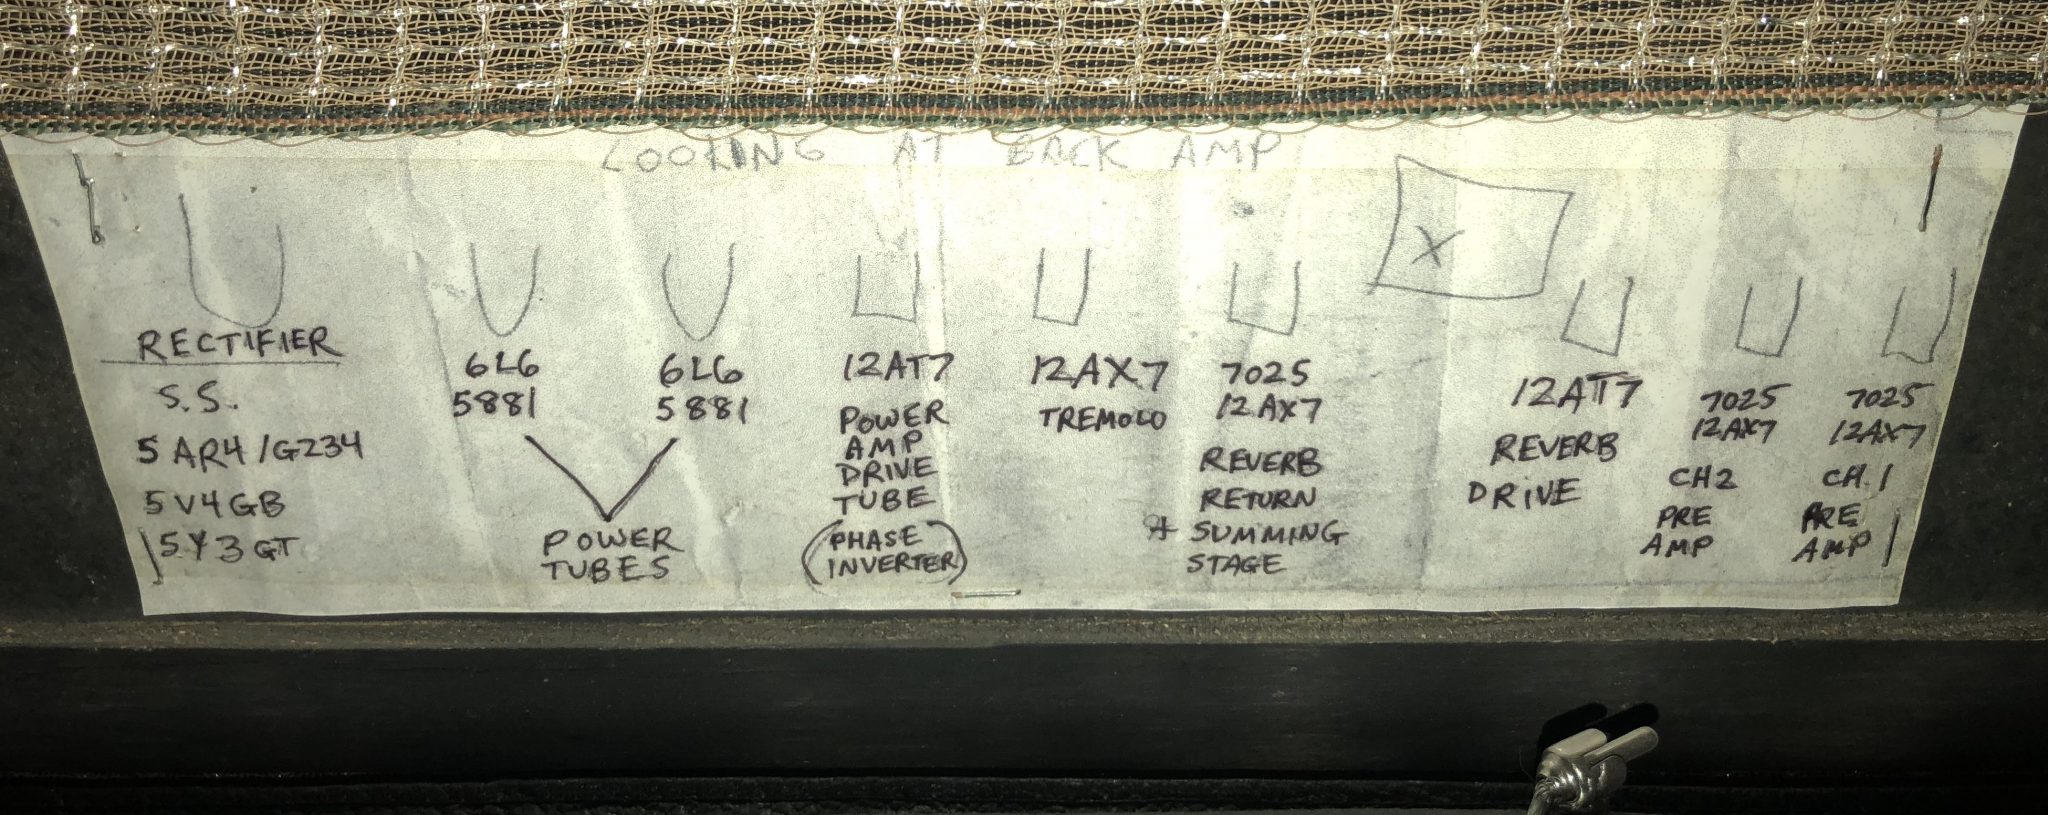 LOOKING AT BACK AMP
X
RECTIFIER
S.S.
5AR4/GZ34
5V4GB
5Y3GT
6L6
5881
6L6
5881
POWER
TUBES
12AT7
POWER
AMP
DRIVE
TUBE
(PHASE
INVERTER)
12AX7
TREMOLO
7025
12AX7
REVERB
RETURN
+ SUMMING
STAGE
12AT7
REVERB
DRIVE
7025
12AX7
CH2
PRE
AMP
7025
12AX7
CH.1
PRE
AMP